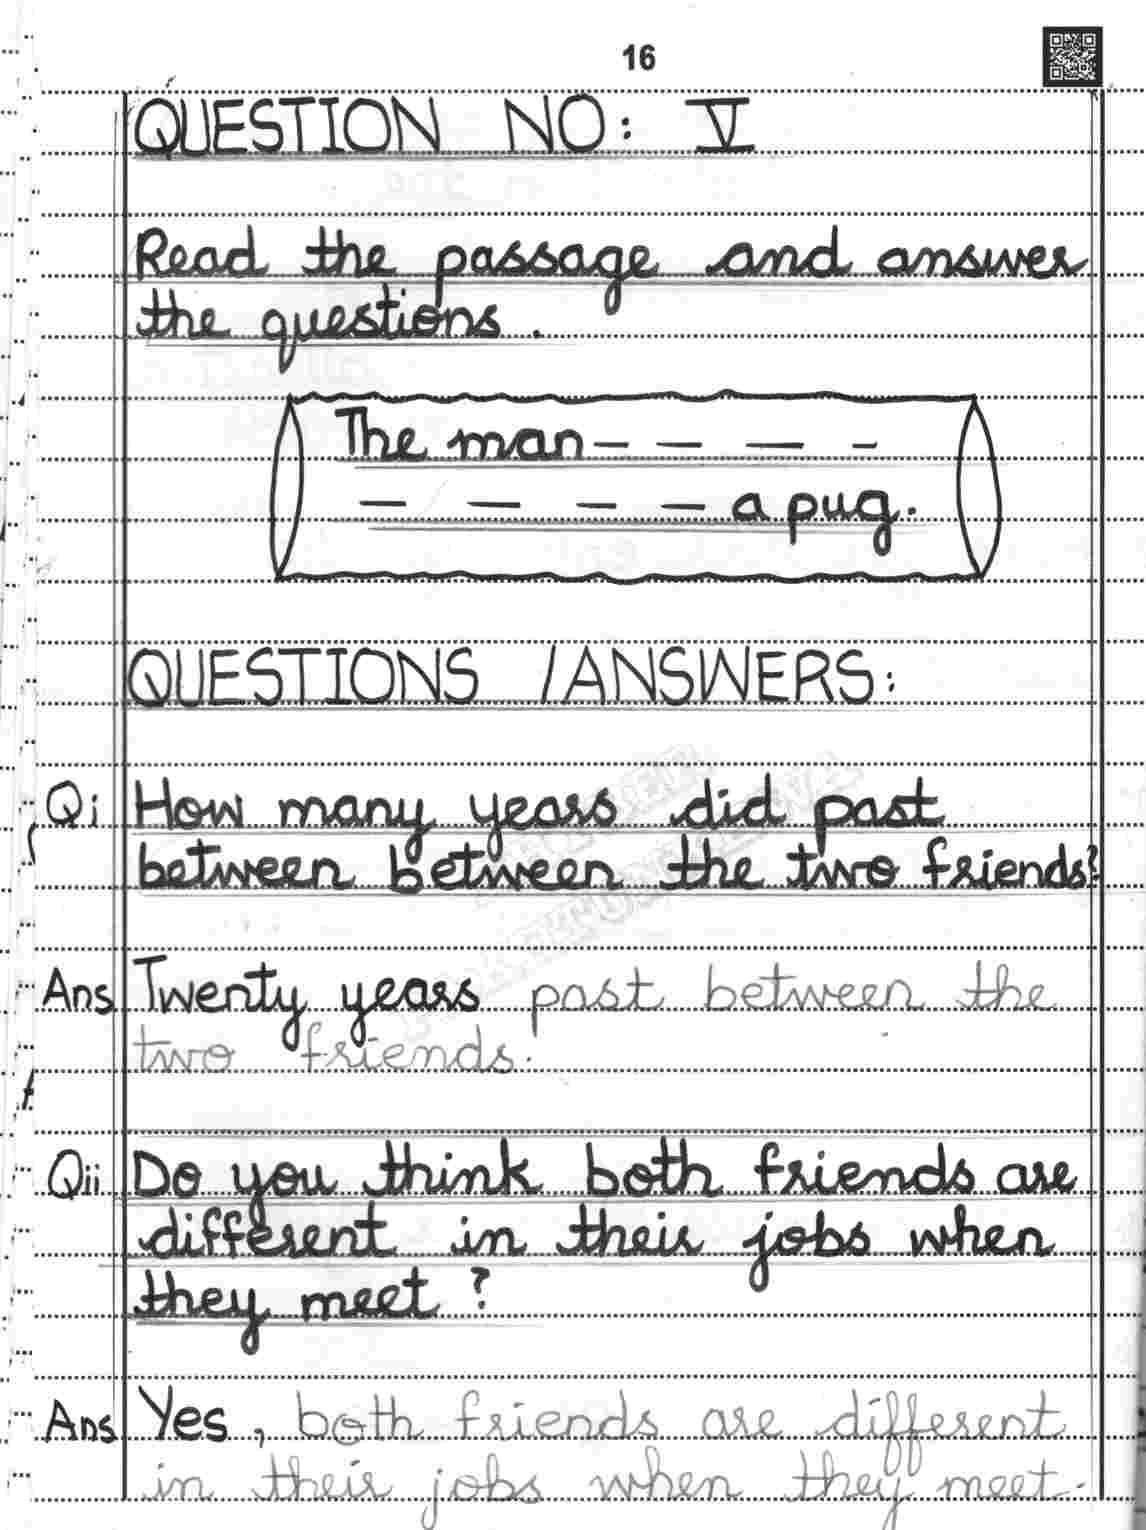 16
QUESTION NO: V
Read the passage and answer
the questions.
The man — — — -
— — — — a pug.
QUESTIONS /ANSWERS:
Qi How many years did past
between between the two friends?
Ans Twenty years past between the
two friends.
Qii Do you think both friends are
different in their jobs when
they meet?
Ans Yes, both friends are different
in their jobs when they meet.